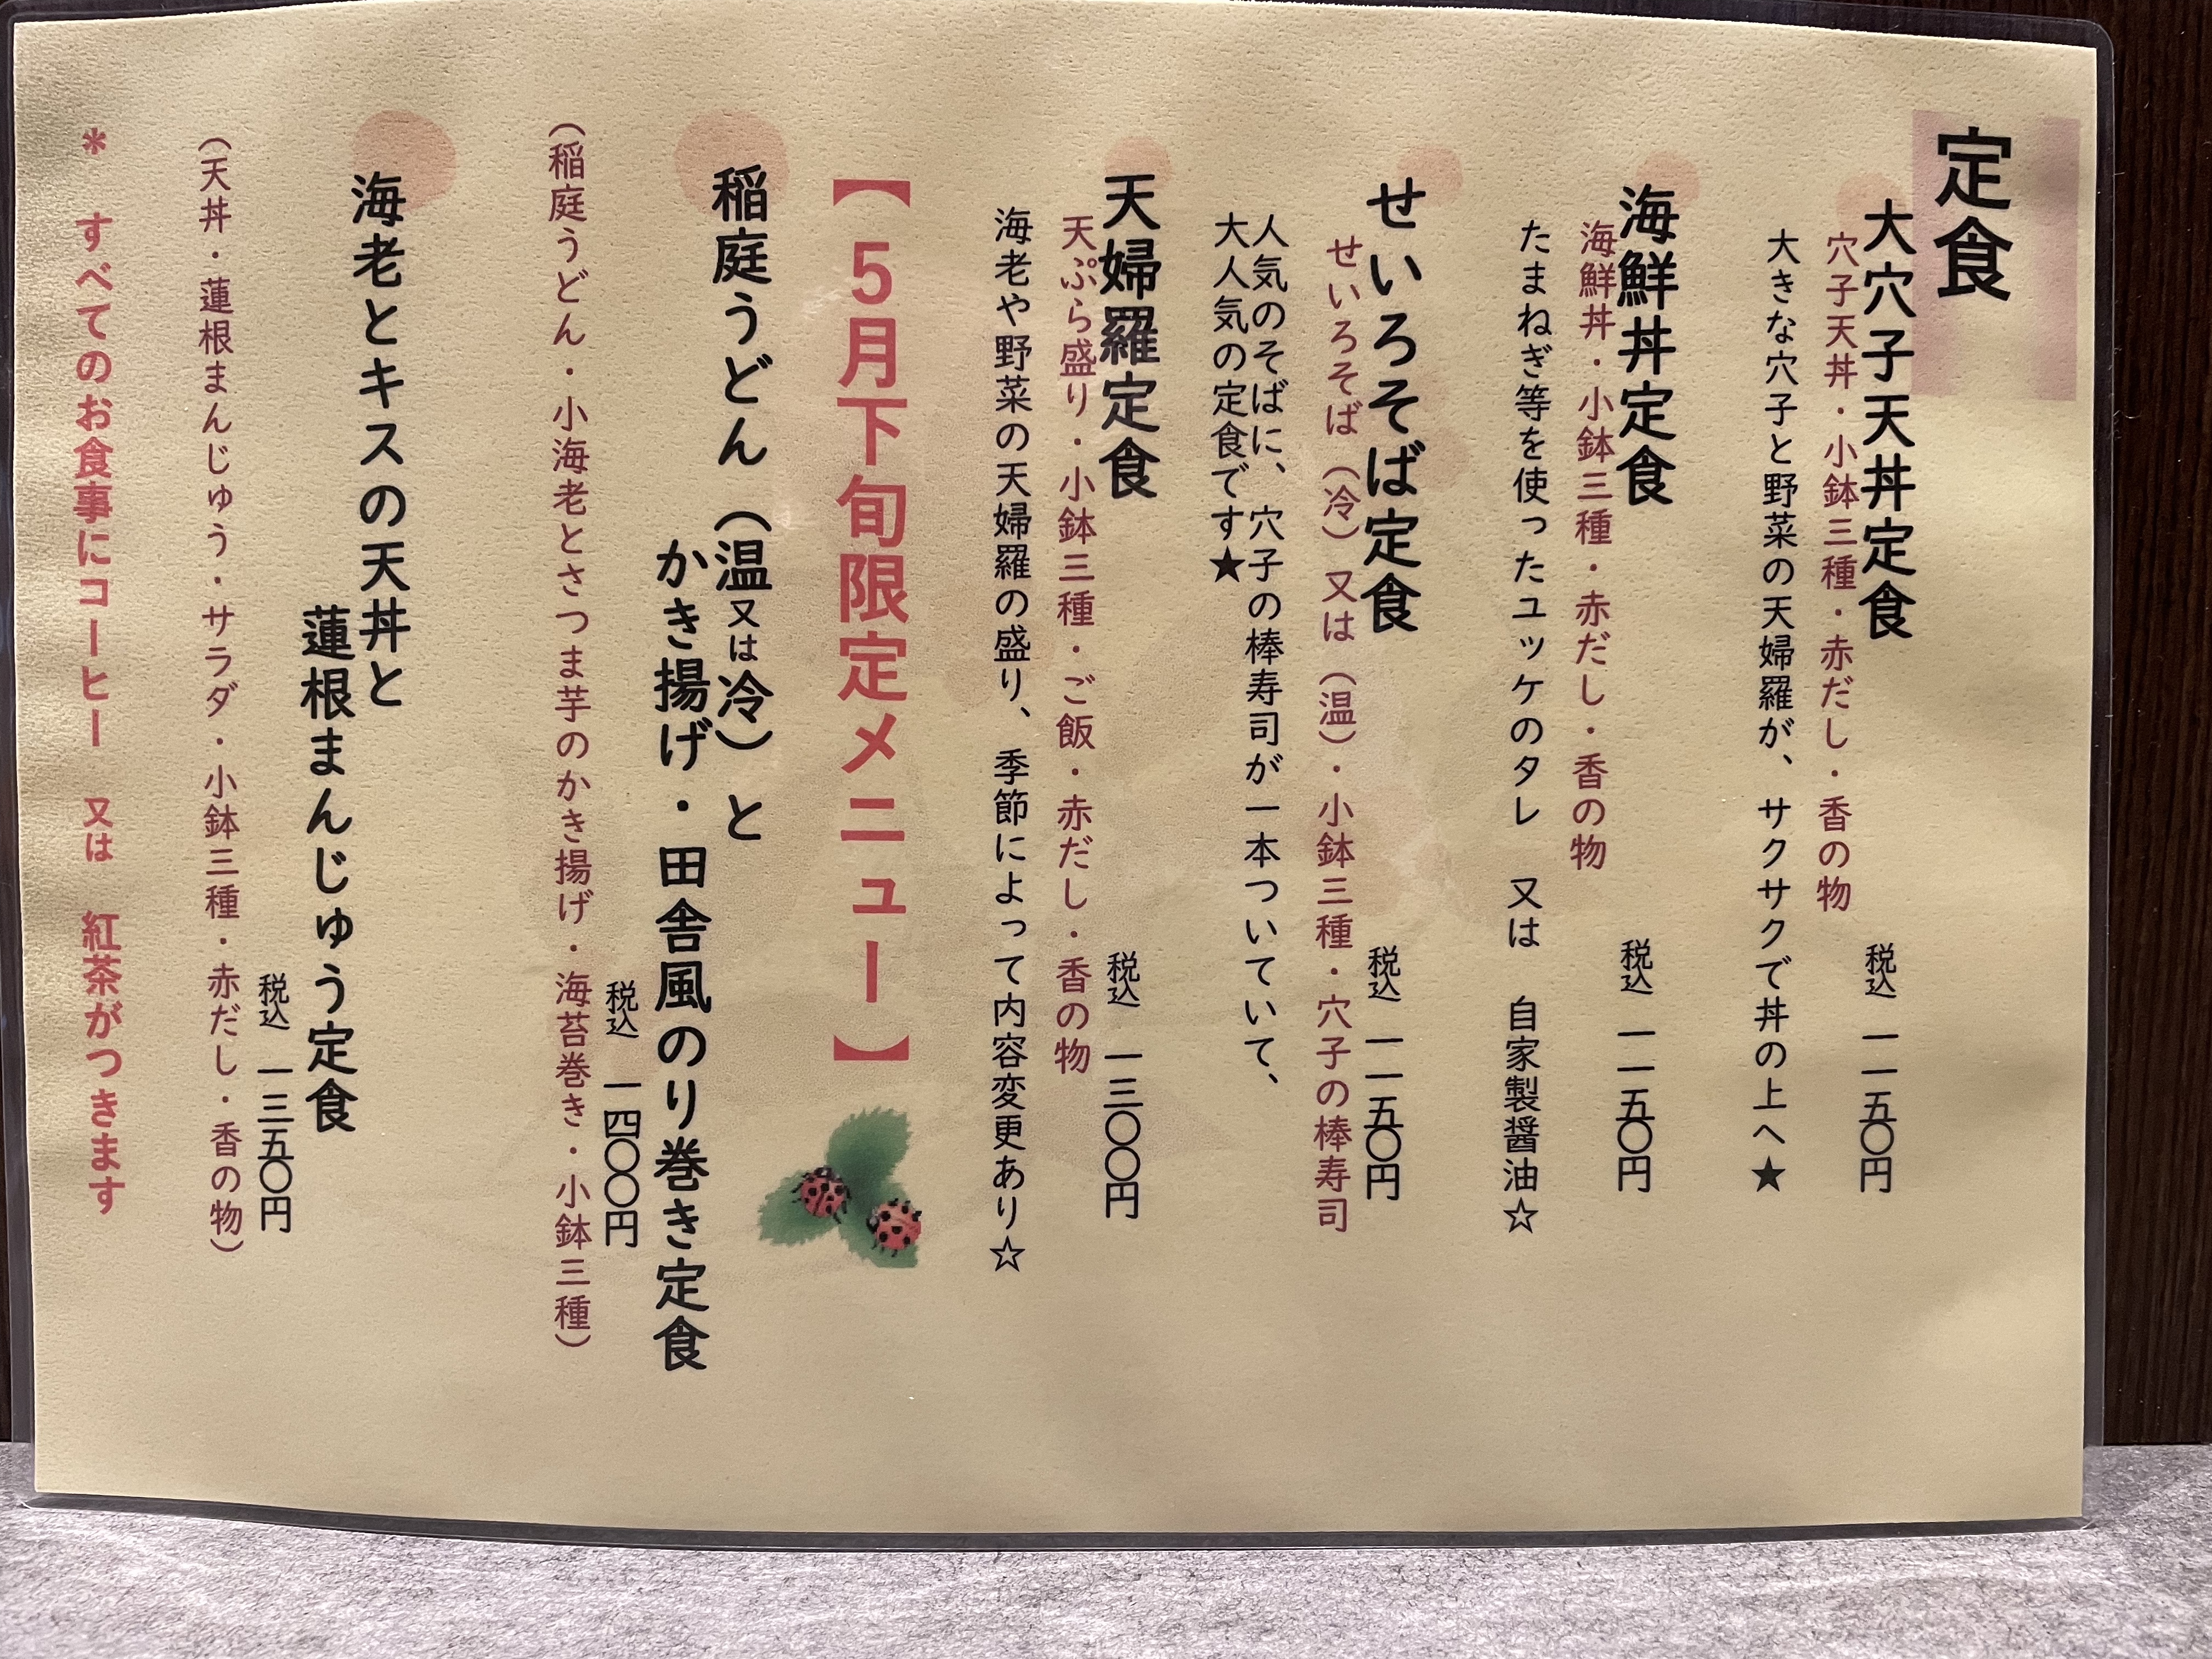 定食
大穴子天丼定食
税込 一一五〇円
穴子天丼・小鉢三種・赤だし・香の物
大きな穴子と野菜の天婦羅が、サクサクで丼の上へ★
海鮮丼定食
税込 一一五〇円
海鮮丼・小鉢三種・赤だし・香の物
たまねぎ等を使ったユッケのタレ 又は 自家製醤油☆
せいろそば定食
税込 一一五〇円
せいろそば（冷）又は（温）・小鉢三種・穴子の棒寿司
人気のそばに、穴子の棒寿司が一本ついていて、
大人気の定食です★
天婦羅定食
税込 一三〇〇円
天ぷら盛り・小鉢三種・ご飯・赤だし・香の物
海老や野菜の天婦羅の盛り、季節によって内容変更あり☆
【５月下旬限定メニュー】
稲庭うどん（温又は冷）と
かき揚げ・田舎風のり巻き定食
税込 一四〇〇円
（稲庭うどん・小海老とさつま芋のかき揚げ・海苔巻き・小鉢三種）
海老とキスの天丼と
蓮根まんじゅう定食
税込 一三五〇円
（天丼・蓮根まんじゅう・サラダ・小鉢三種・赤だし・香の物）
＊ すべてのお食事にコーヒー 又は 紅茶がつきます